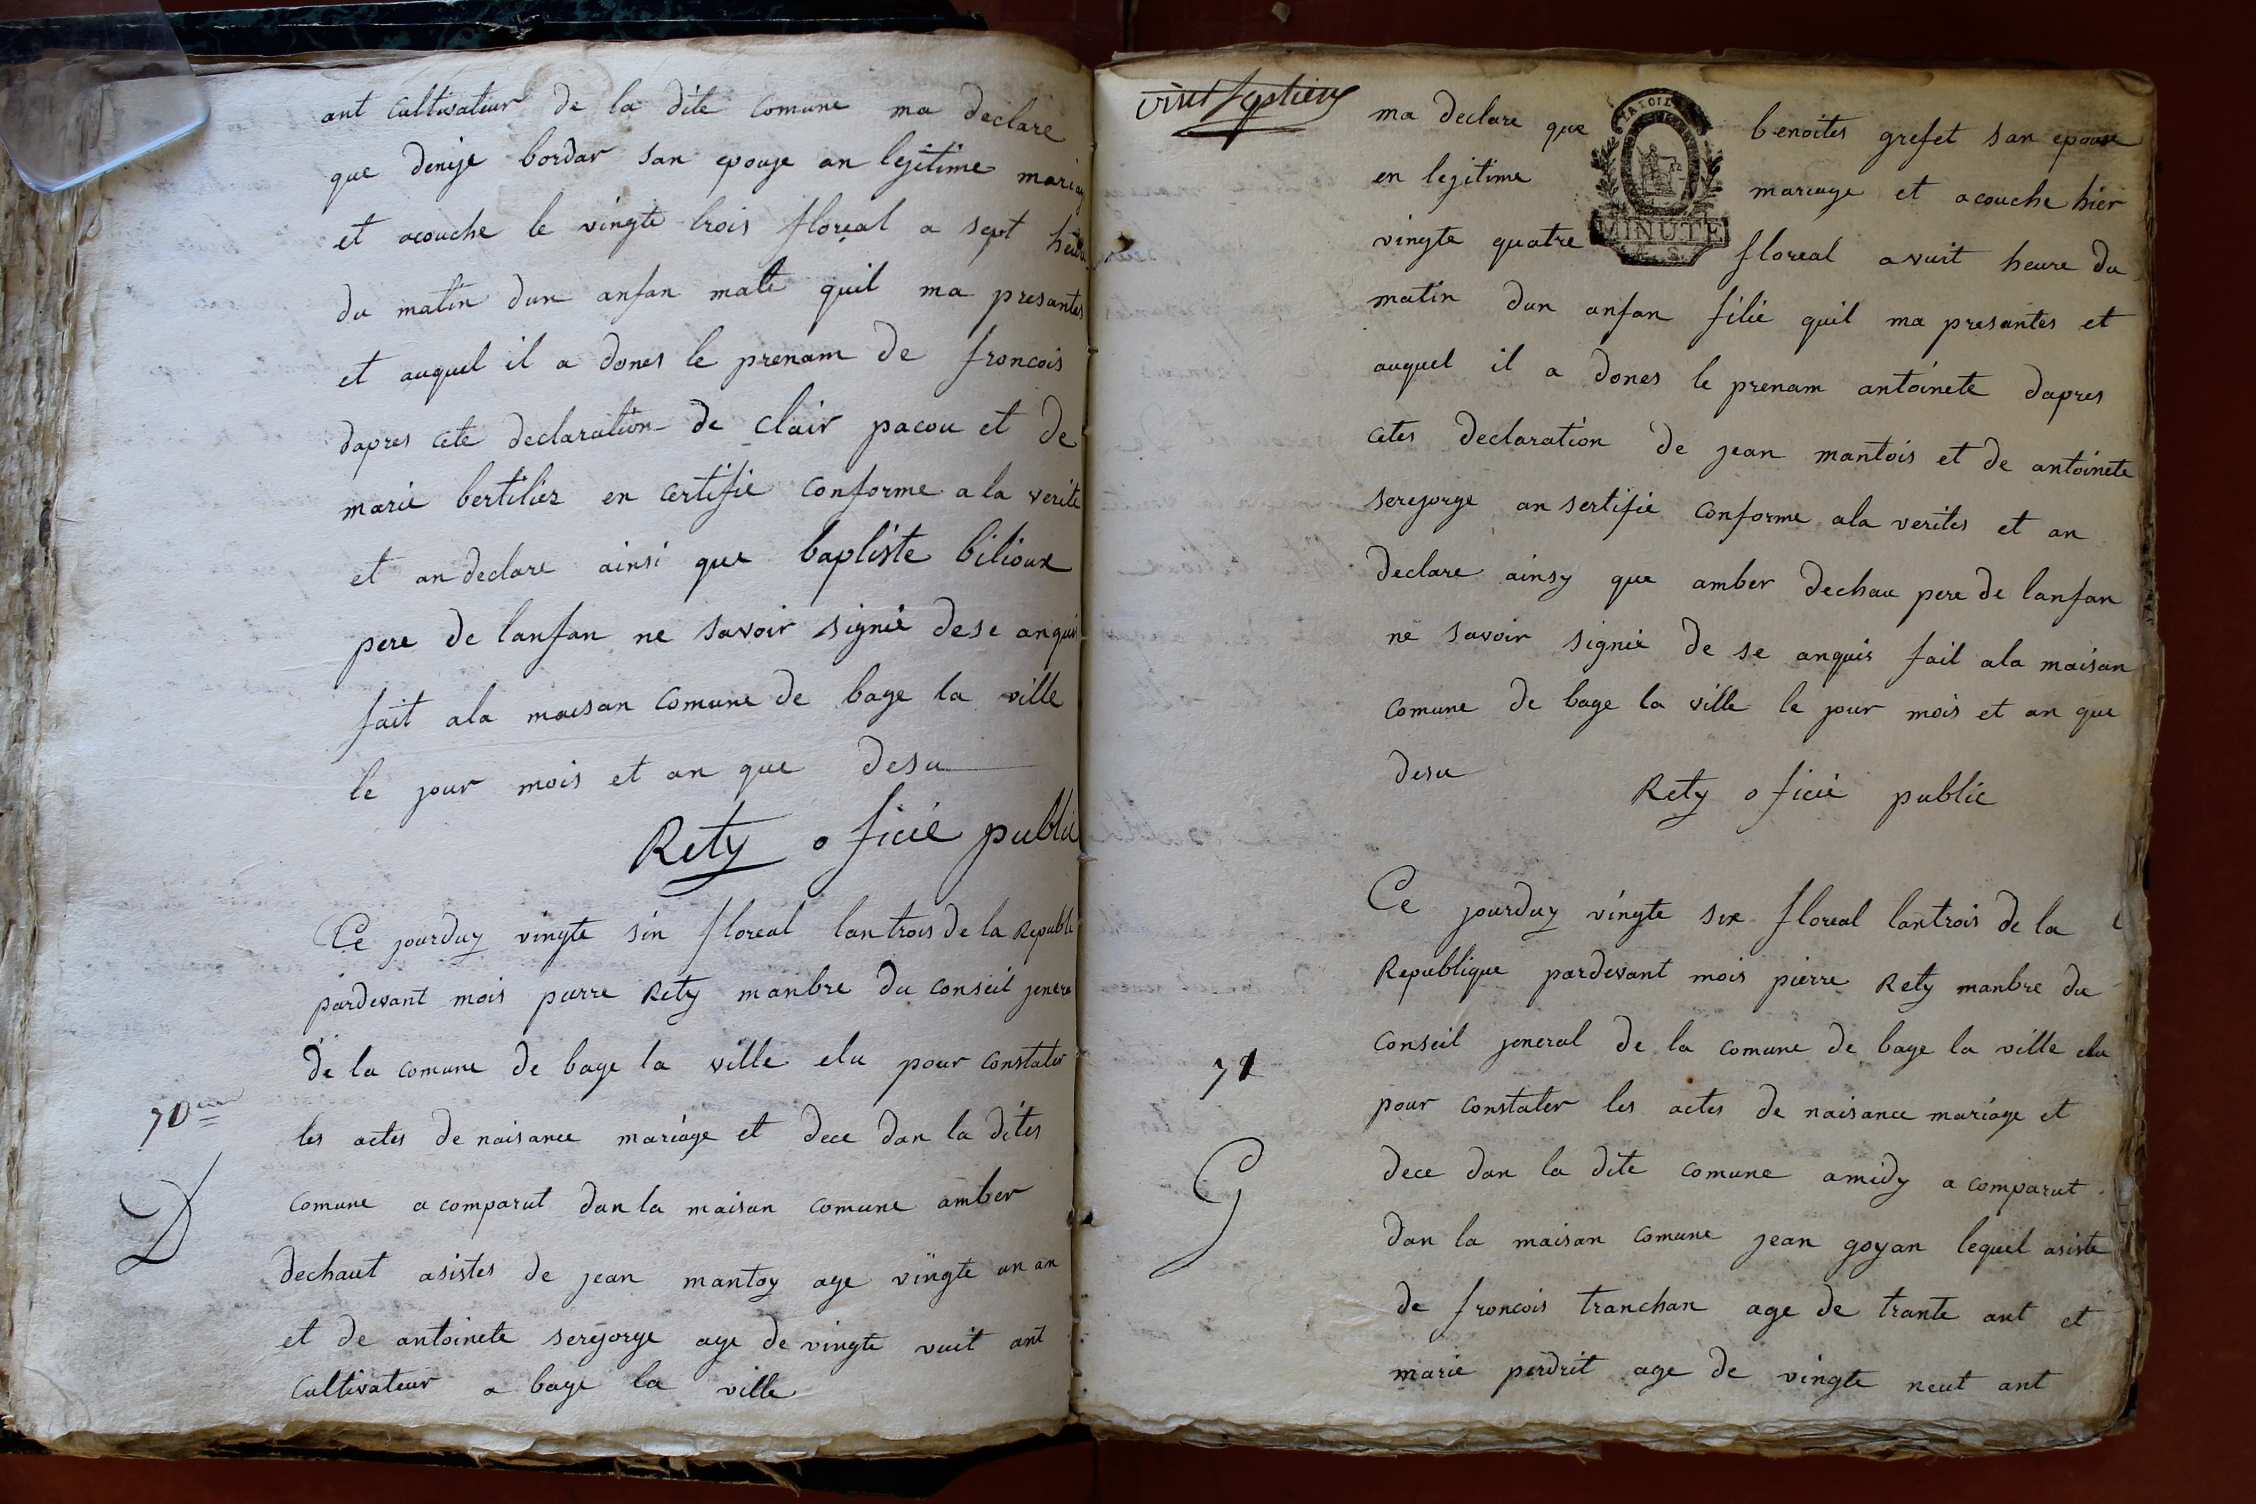 ant cultivateur de la dite comune ma declare
que denise bordar san epouse an legitime mariag
et acouche le vingte trois floreal a sept heure
du matin dun anfan male quil ma presantes
et auquel il a dones le prenam de francois
dapres cete declaration de clair pacou et de
marie bertilier en certifie conforme a la verite
et an declare ainsi que baptiste bilioux
pere de lanfan ne savoir signié dese anquis
fait ala maisan comune de bage la ville
le jour mois et an que desu
Rety oficié public
Ce jourduy vingte six floreal lan trois de la Republi
pardevant mois pierre Rety manbre du conseil jenera
de la comune de bage la ville elu pour constater
70
les actes de naisance mariage et dece dan la dites
D
comune a comparut dan la maisan comune amber
dechaut asistes de jean mantoy age vingte an an
et de antoinete seregorge age de vingte vuit ant
cultivateur a bage la ville
ma declare que benoites grefet san epouse
en legitime mariage et acouche hier
MINUTE
vingte quatre floreal avuit heure du
matin dun anfan filie quil ma presantes et
auquel il a dones le prenam antoinete dapres
cetes declaration de jean mantois et de antoinete
seregorge an sertifie conforme ala verites et an
declare ainsy que amber dechau pere de lanfan
ne savoir signié de se anquis fait ala maisan
comune de bage la ville le jour mois et an que
desu
Rety oficié public
Ce jourduy vingte six floreal lantrois de la
Republique pardevant mois pierre Rety manbre du
conseil jeneral de la comune de bage la ville elu
71
pour constater les actes de naisance mariage et
G
dece dan la dite comune amidy a comparut
dan la maisan comune jean goyan lequel asiste
de francois tranchan age de trante ant et
marie perdrit age de vingte neut ant